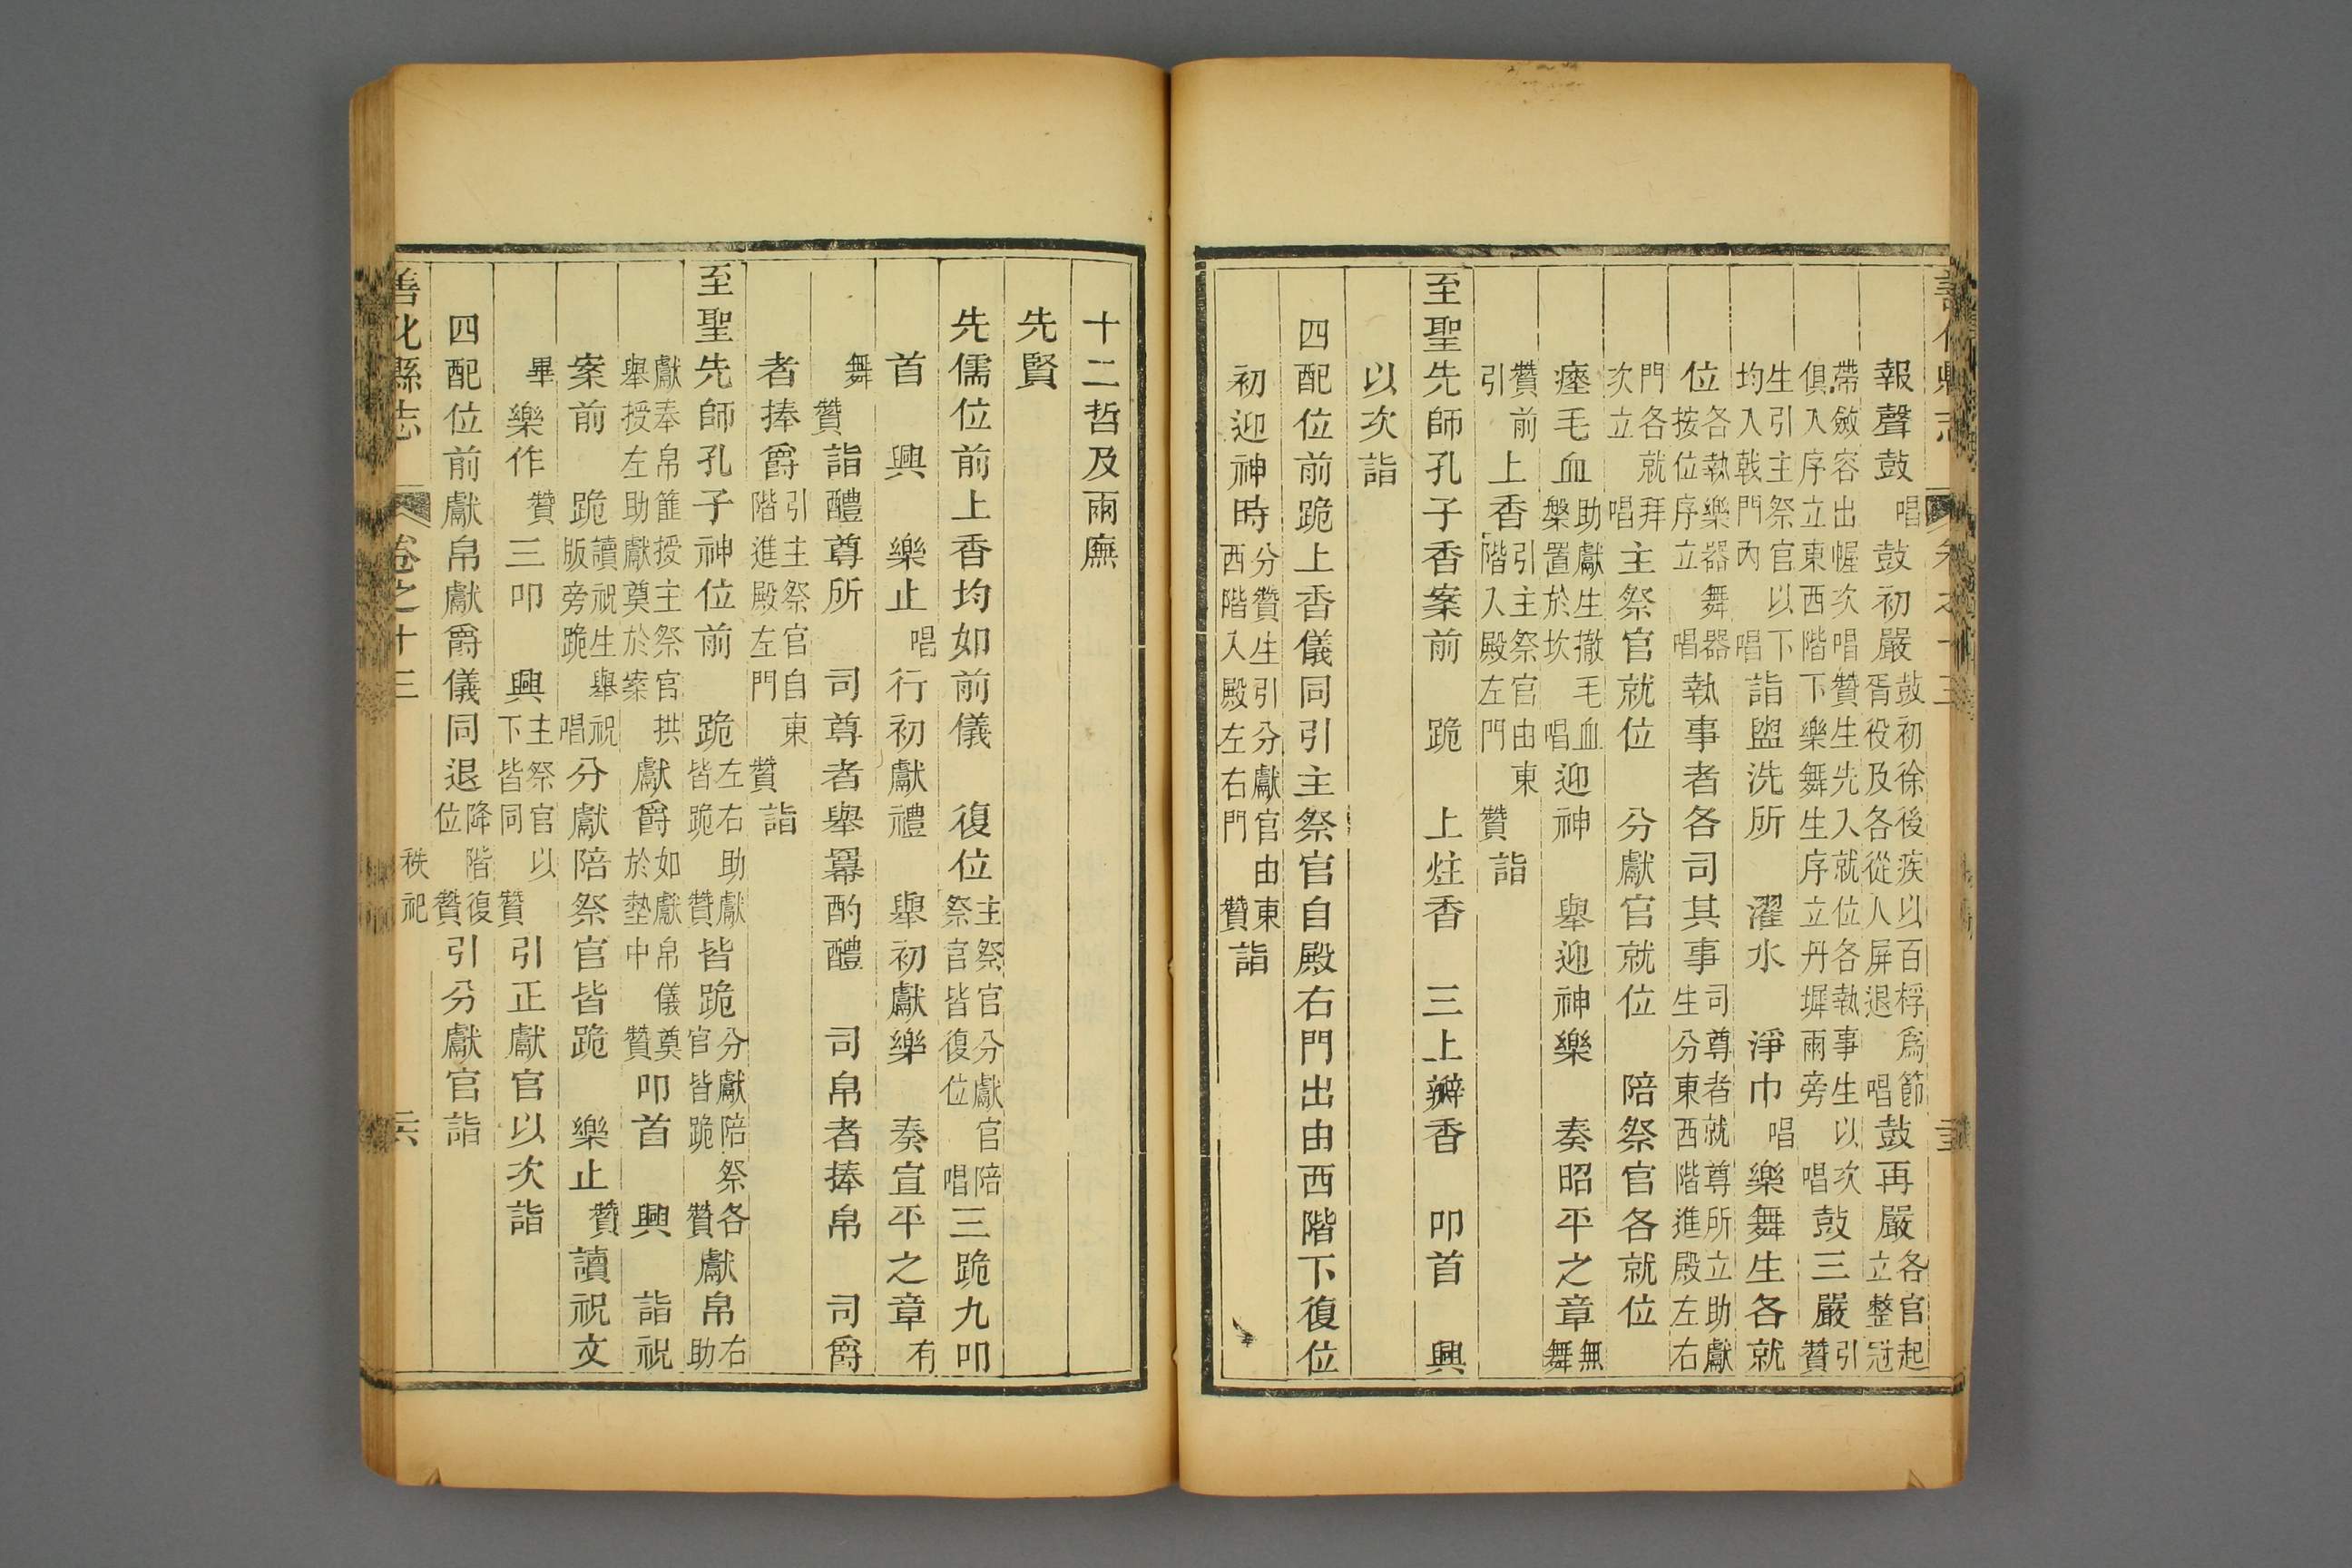 報聲鼓 唱 鼓初嚴 鼓初徐後疾以百桴爲節胥役及各從人屏退 唱 鼓再嚴 各官起立整冠
帶斂容出幄次唱贊生先入就位各執事生以次俱入序立東西階下樂舞生序立丹墀兩旁 唱 鼓三嚴 引贊
生引主祭官以下均入戟門內 唱 詣盥洗所 濯水 淨巾 唱 樂舞生各就
位 各執樂器舞器按位序立 唱 執事者各司其事 司尊者就尊所立助獻生分東西階進殿左右
門各就拜次立 唱 主祭官就位 分獻官就位 陪祭官各就位
瘞毛血 助獻生撤毛血槃置於坎 唱 迎神 舉迎神樂 奏昭平之章 無舞
贊引 前上香 引主祭官由東階入殿左門 贊 詣
至聖先師孔子香案前 跪 上炷香 三上瓣香 叩首 興
以次詣
四配位前跪上香儀同引主祭官自殿右門出由西階下復位
初迎神時 分贊生引分獻官由東西階入殿左右門 贊 詣
十二哲及兩廡
先賢
先儒位前上香均如前儀 復位 主祭官分獻官陪祭官皆復位 唱 三跪九叩
首 興 樂止 唱 行初獻禮 舉初獻樂 奏宣平之章 有
舞 贊 詣醴尊所 司尊者舉羃酌醴 司帛者捧帛 司爵
者捧爵 引主祭官自東階進殿左門 贊 詣
至聖先師孔子神位前 跪 左右助獻皆跪 贊 皆跪 分獻陪祭各官皆跪 贊 獻帛 右助
獻奉帛篚授主祭官拱舉授左助獻奠於案 獻爵 如獻帛儀奠於墊中 贊 叩首 興 詣祝
案前 跪 讀祝生舉祝版旁跪 唱 分獻陪祭官皆跪 樂止 贊 讀祝文
畢 樂作 贊 三叩 興 主祭官以下皆同 贊 引正獻官以次詣
四配位前獻帛獻爵儀同退 降階復位 贊 引分獻官詣
善化縣志 卷之十三 秩祀